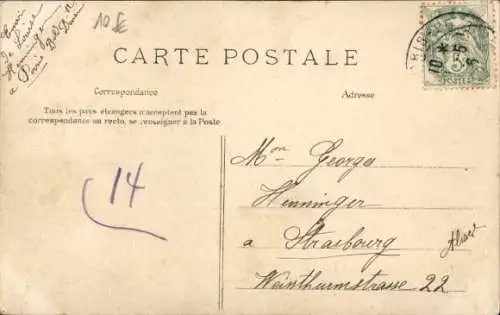 Envoi
de Louise
Henninger
a Paris
10 £
CARTE POSTALE
Correspondance
Adresse
Tous les pays étrangers n'acceptent pas la
correspondance au recto, se renseigner à la Poste
10 * 5
5
14
Mon George
Henninger
a Strasbourg
Alsace
Weinthurmstrasse 22